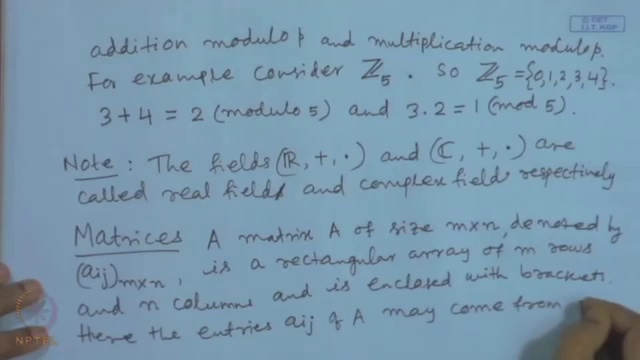 © CET
I.I.T. KGP
addition modulo p and multiplication modulo p.
For example consider ℤ₅. So ℤ₅ = {0,1,2,3,4}.
3+4 = 2 (modulo 5) and 3.2 = 1 (mod 5).
Note: The fields (ℝ, +, ·) and (ℂ, +, ·) are
called real field and complex field respectively
Matrices A matrix A of size m×n, denoted by
(aij)m×n, is a rectangular array of m rows
and n columns and is enclosed with brackets.
Here the entries aij of A may come from
NPTEL